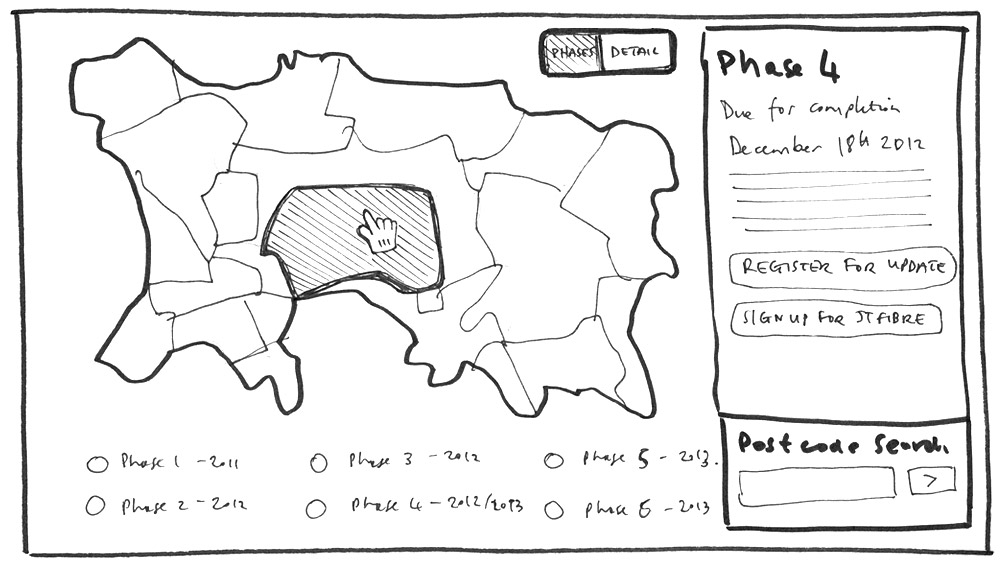 PHASES DETAIL
Phase 4
Due for completion
December 18th 2012
REGISTER FOR UPDATE
SIGN UP FOR JT FIBRE
Postcode Search
>
Phase 1 - 2011
Phase 3 - 2012
Phase 5 - 2013.
Phase 2 - 2012
Phase 4 - 2012/2013
Phase 6 - 2013